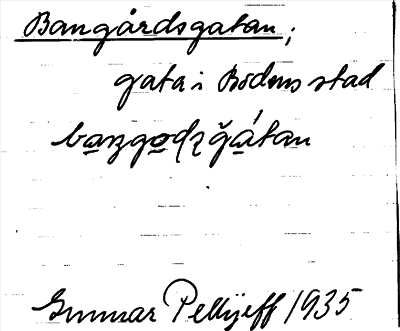 Bangårdsgatan;
gata i Bodens stad
baŋgodʐğátan
Gunnar Pellijeff 1935